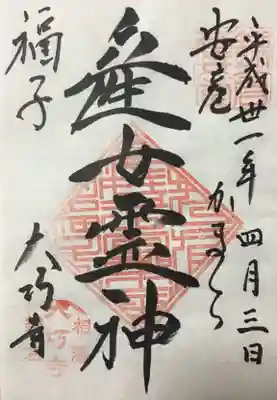 平成卅一年四月三日
安産
かまくら
産女霊神
福子
大巧寺